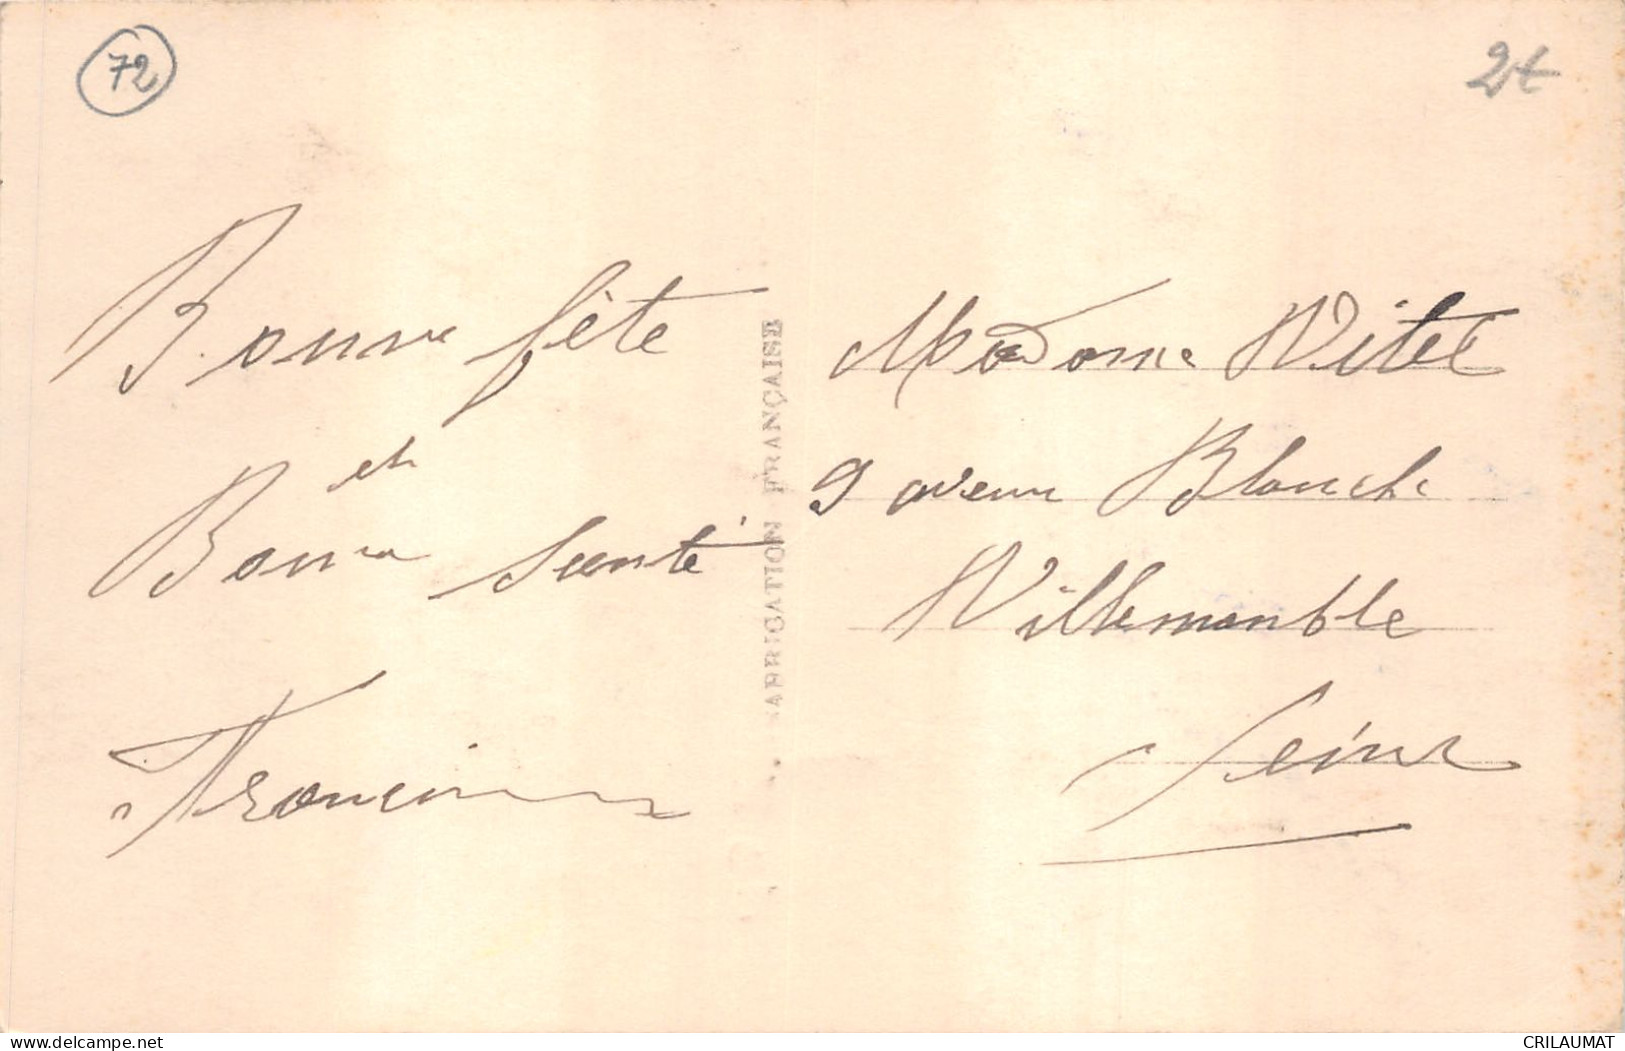 72
2€
Bonne fête
et
Bonne Santé
Francine
FABRICATION FRANÇAISE
Madame Witel
9 avenue Blanche
Villemomble
Seine
www.delcampe.net
CRILAUMAT